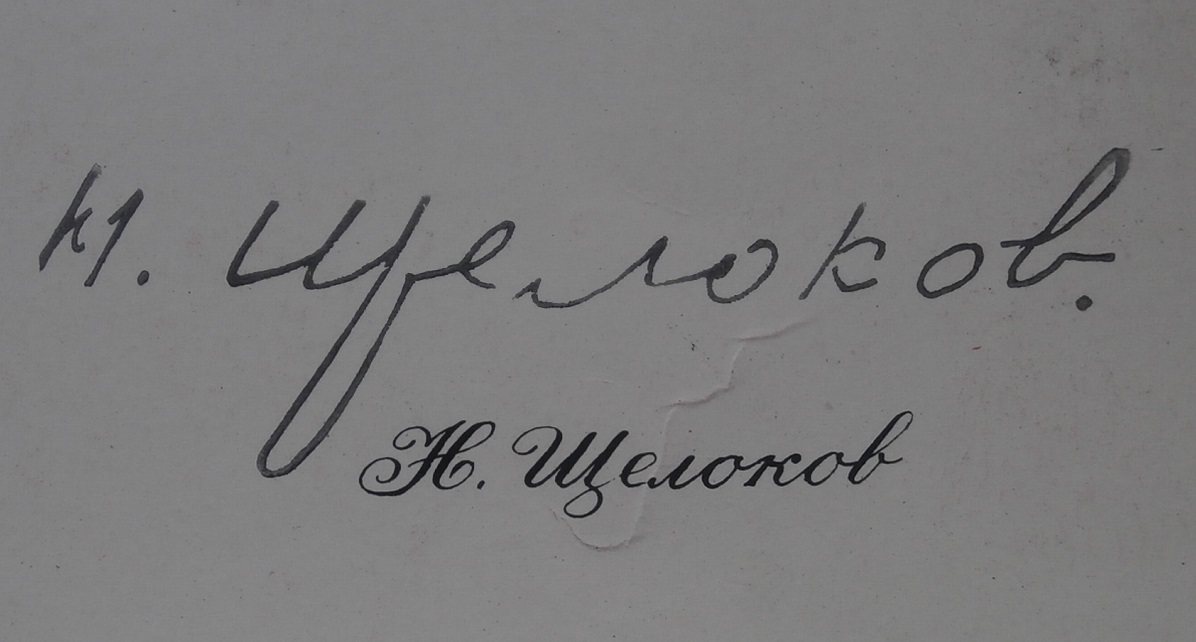 Н. Щелоков.
Н. Щелоков